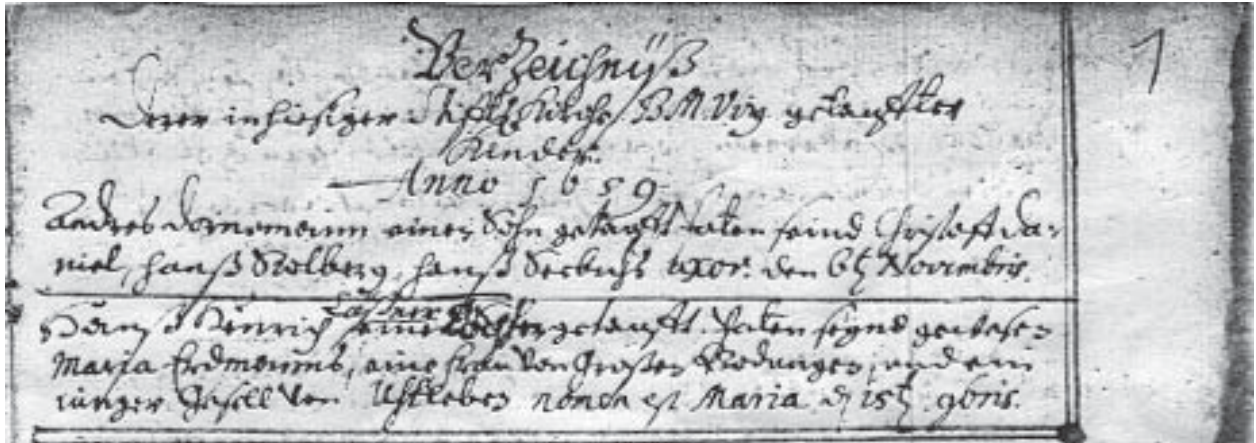 VerZeichnüß
1
Derer in hiesiger StifftsKirche B.M.Virg getaufften
Kinder.
Anno 1659
Andres Dornemann einen Sohn getaufft taten seind Christoff Da-
niel, Hanß Stolberg, Hanß Seebachs uxor. den 6t Novembris.
Lößner
Hanß Hinrich eine Tochter getaufft. Paten seynd gewesen
Maria Erdmanns, eine frau von Großen Bodungen, und ein
iunger Gesell von Ustleben nomen est Maria d 15t 9bris.